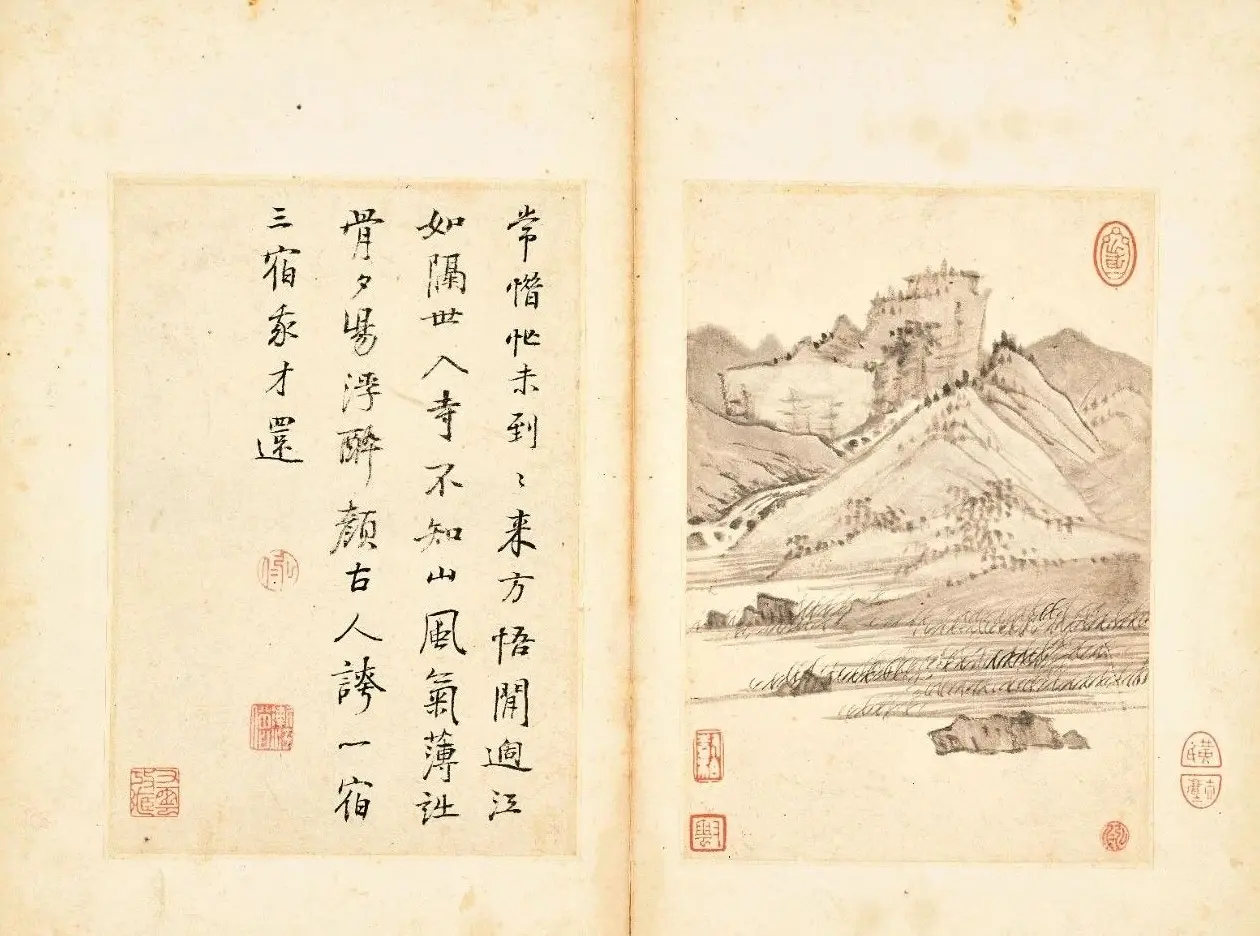 常憯忙未到〻来方悟閒過江
如隔世入寺不知山風氣薄詩
骨夕陽浮醉顔古人誇一宿
三宿我才還